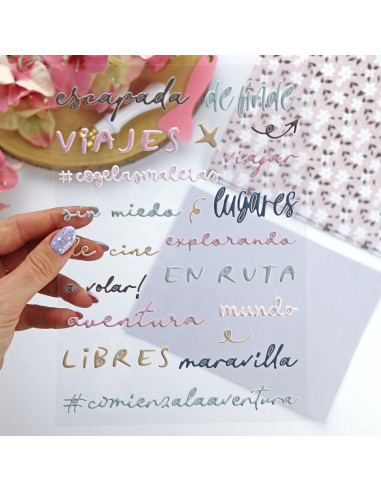 escapada de finde
VIAJES
viajar
#cogelasmaletas
sin miedo lugares
de cine explorando
a volar! EN RUTA
aventura mundo
LIBRES maravilla
#comienzalaaventura